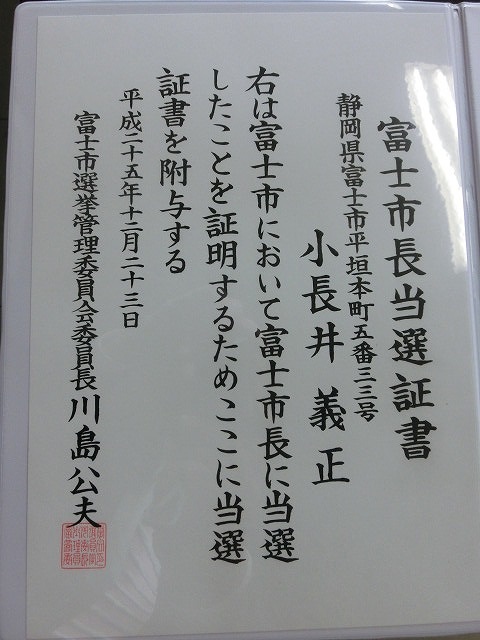 富士市長当選証書
静岡県富士市平垣本町五番三三号
小長井 義正
右は富士市において富士市長に当選
したことを証明するためここに当選
証書を附与する
平成二十五年十二月二十三日
富士市選挙管理委員会委員長 川島公夫